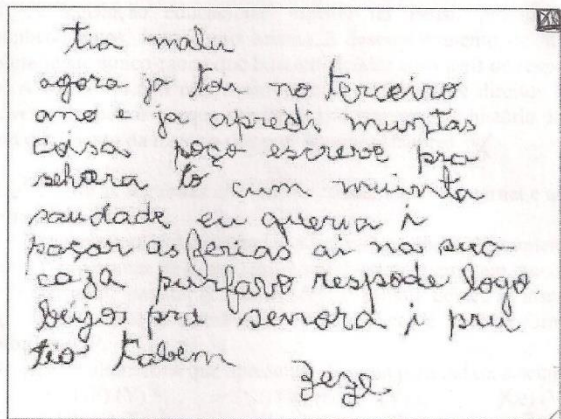 tia malu
agora ja tou no terceiro
ano e ja apredi muntas
coisas poço escreve pra
sehora tô cum muinta
saudade eu queria i
paçar as ferias ai na sua
caza purfavo respode logo.
beijos pra senora i pru
tio tabem
zeze